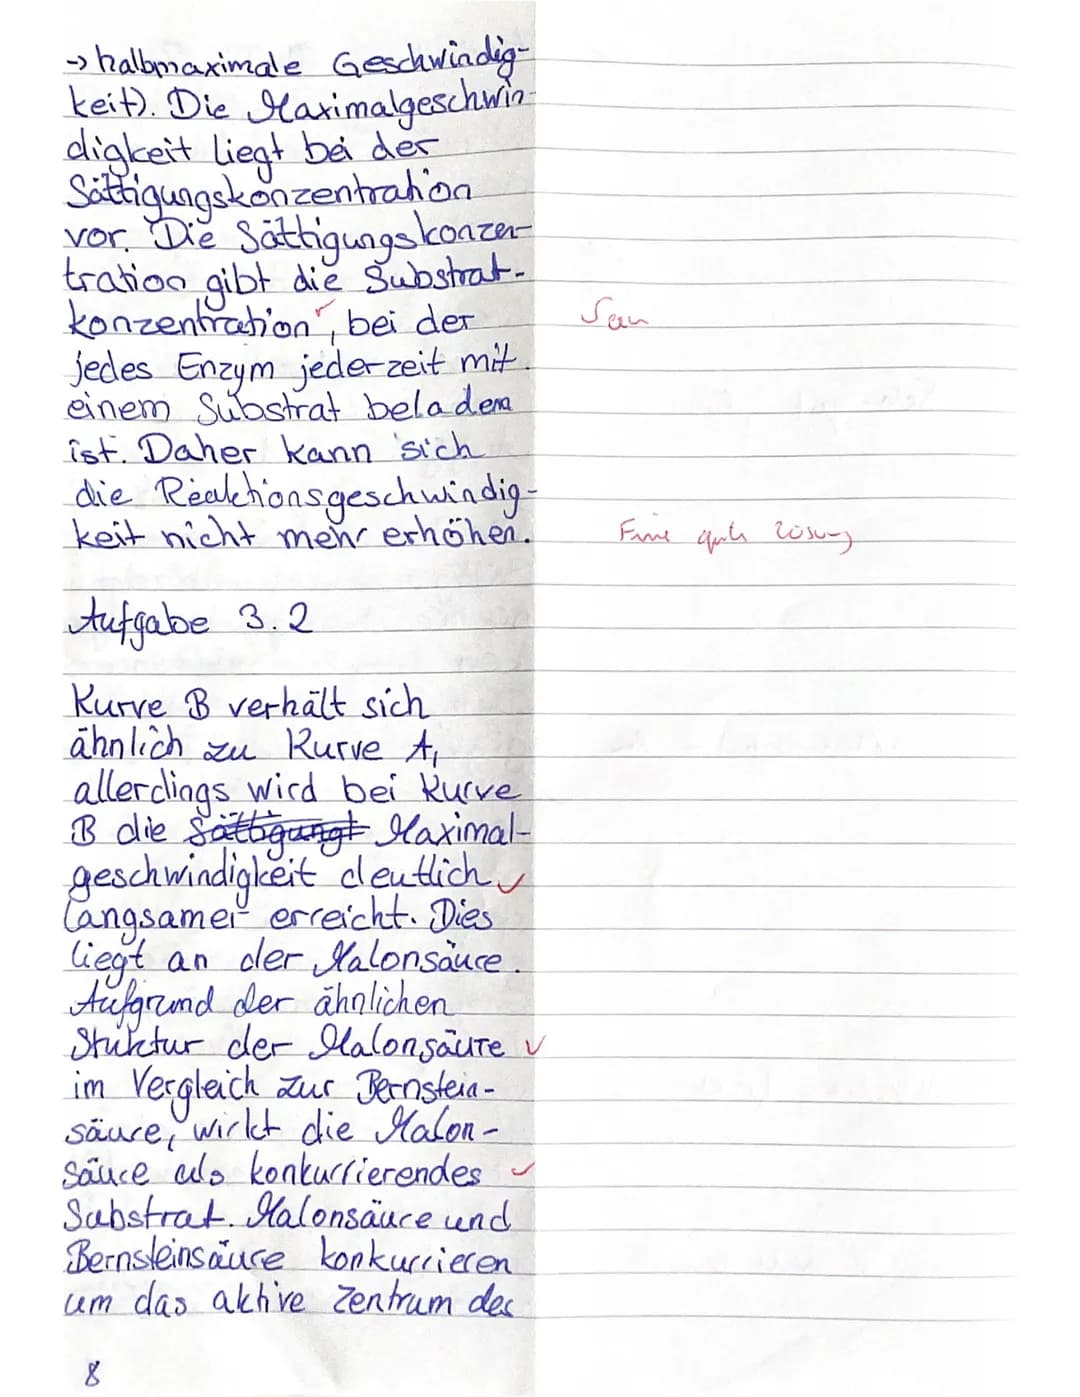 -> halbmaximale Geschwindig-
keit). Die Maximalgeschwin-
digkeit liegt bei der
Sättigungskonzentration
vor. Die Sättigungskonzen-
tration gibt die Substrat-
konzentration, bei der
jedes Enzym jederzeit mit
einem Substrat beladen
ist. Daher kann sich
die Reaktionsgeschwindig-
keit nicht mehr erhöhen.
Eine gute Lösung
Aufgabe 3.2
Kurve B verhält sich
ähnlich zu Kurve A,
allerdings wird bei Kurve
B die Sättigungt Maximal-
geschwindigkeit deutlich ✓
langsamer erreicht. Dies
liegt an der Malonsäure.
Aufgrund der ähnlichen
Stuktur der Malonsäure ✓
im Vergleich zur Bernstein-
säure, wirkt die Malon-
säure als konkurrierendes ✓
Substrat. Malonsäure und
Bernsteinsäure konkurrieren
um das aktive Zentrum des
8